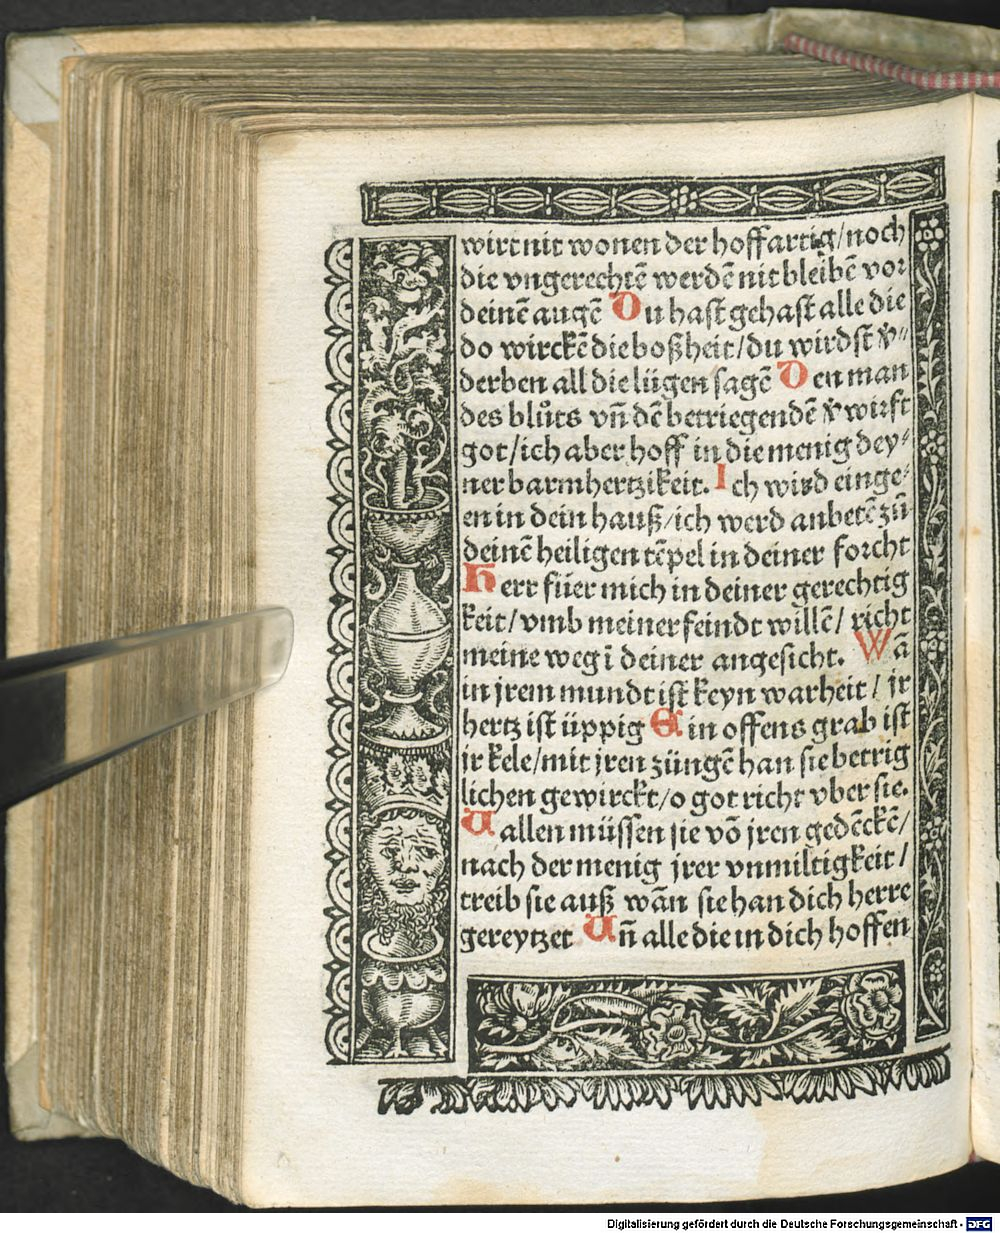 wirt nit wonen der hoffartig/noch
die vngerechtē werdē nit bleibē vor
deinē augē Du hast gehast alle die
do wirckē die boßheit/du wirdst v̈⸗
derben all die lügen sagē Den man
des blůts vn̄ dē betriegendē v̈wirft
got/ich aber hoff in die menig dey⸗
ner barmhertzikeit. Ich wird einge⸗
en in dein hauß/ich werd anbetē zū
deinē heiligen tēpel in deiner forcht
Herr füer mich in deiner gerechtig
keit/vmb meiner feindt willē/ richt
meine weg ī deiner angesicht. Wā
in jrem mundt ist keyn warheit/ jr
hertz ist üppig Ein offens grab ist
jr kele/mit jren züngē han sie betrig
lichen gewirckt/o got richt vber sie.
Uallen müssen sie vō jren gedēckē/
nach der menig jrer vnmiltigkeit/
treib sie auß wān sie han dich herre
gereytzet Un̄ alle die in dich hoffen
Digitalisierung gefördert durch die Deutsche Forschungsgemeinschaft - DFG